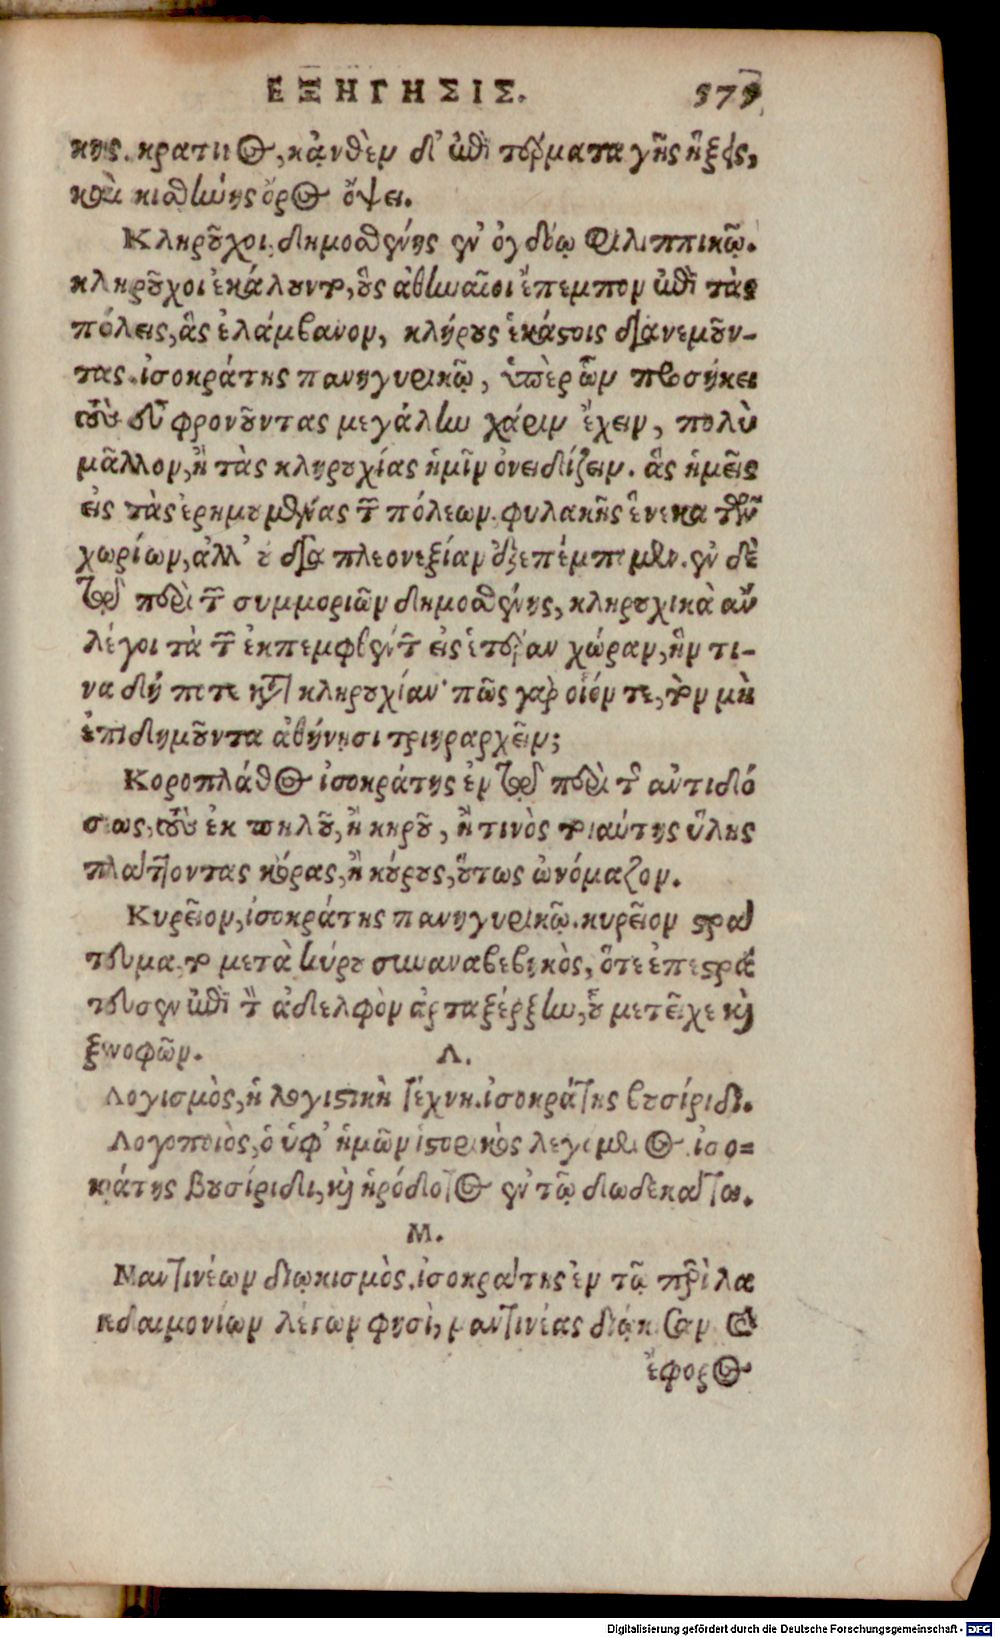 ΕΞΗΓΗΣΙΣ. 575
κης. κρατῖνος, κἀνθὲν δ' ἐπὶ τέρματα γῆς ἥξεις,
καὶ κισθήνης ὄρος ὄψει.
Κληροῦχοι, δημοσθένης ἐν ὀγδόῳ Φιλιππικῷ.
κληροῦχοι ἐκάλουντο, οὓς ἀθηναῖοι ἔπεμπον ἐπὶ τὰς
πόλεις, ἃς ἐλάμβανον, κλήρους ἑκάστοις διανεμοῦν-
τας. ἰσοκράτης πανηγυρικῷ, ὑπὲρ ὧν προσήκει
τοὺς εὖ φρονοῦντας μεγάλην χάριν ἔχειν, πολὺ
μᾶλλον, ἢ τὰς κληρουχίας ἡμῖν ὀνειδίζειν. ἃς ἡμεῖς
εἰς τὰς ἐρημουμένας τῶν πόλεων. φυλακῆς ἕνεκα τῶν
χωρίων, ἀλλ' οὐ διὰ πλεονεξίαν ἐξεπέμπομεν. ἐν δὲ
τῷ περὶ τῶν συμμοριῶν δημοσθένης, κληρουχικὰ ἂν
λέγοι τὰ τῶν ἐκπεμφθέντων εἰς ἑτέραν χώραν, ἥν τι-
να δή ποτε κατὰ κληρουχίαν· πῶς γὰρ οἷόν τε, τὸν μὴ
ἐπιδημοῦντα ἀθήνησι τριηραρχεῖν;
Κοροπλάθος ἰσοκράτης ἐν τῷ περὶ τῆς ἀντιδό
σεως, τοὺς ἐκ πηλοῦ, ἢ κηροῦ, ἤ τινος τοιαύτης ὕλης
πλάττοντας κόρας, ἢ κούρους, οὕτως ὠνόμαζον.
Κυρεῖον, ἰσοκράτης πανηγυρικῷ. κυρεῖον στρά
τευμα. τὸ μετὰ κύρου συναναβεβηκὸς, ὅτε ἐπεστρά
τευσεν ἐπὶ τὸν ἀδελφὸν ἀρταξέρξην, οὗ μετεῖχε καὶ
ξενοφῶν. Λ.
Λογισμὸς, ἡ λογιστικὴ τέχνη. ἰσοκράτης βουσίριδι.
Λογοποιὸς, ὁ ὑφ' ἡμῶν ἱστορικὸς λεγόμενος. ἰσο=
κράτης βουσίριδι, καὶ ἡρόδοτος ἐν τῷ δωδεκάτῳ.
Μ.
Μαντινέων διῳκισμὸς. ἰσοκράτης ἐν τῷ περὶ λα
κεδαιμονίων λέγων φησὶ, μαντινέας διῴκισαν
ἔφορος
Digitalisierung gefördert durch die Deutsche Forschungsgemeinschaft - DFG